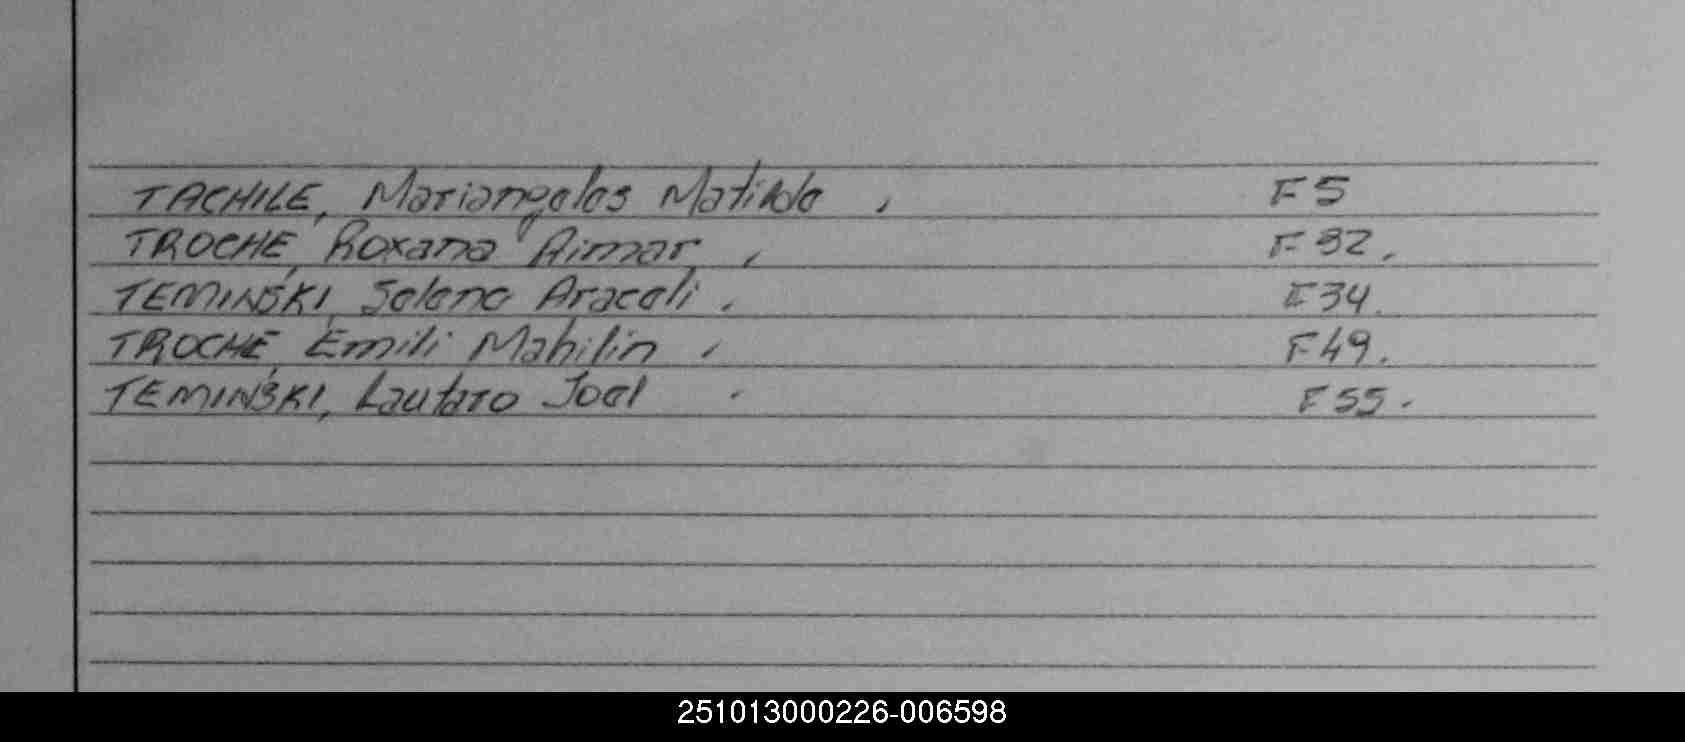 TACHILE, Mariangeles Matilde, F 5
TROCHE, Roxana Aimar, F 32.
TEMINSKI, Selene Araceli. F 34.
TROCHE, Emili Mahilin, F 49.
TEMINSKI, Lautaro Joel. F 55.
251013000226-006598